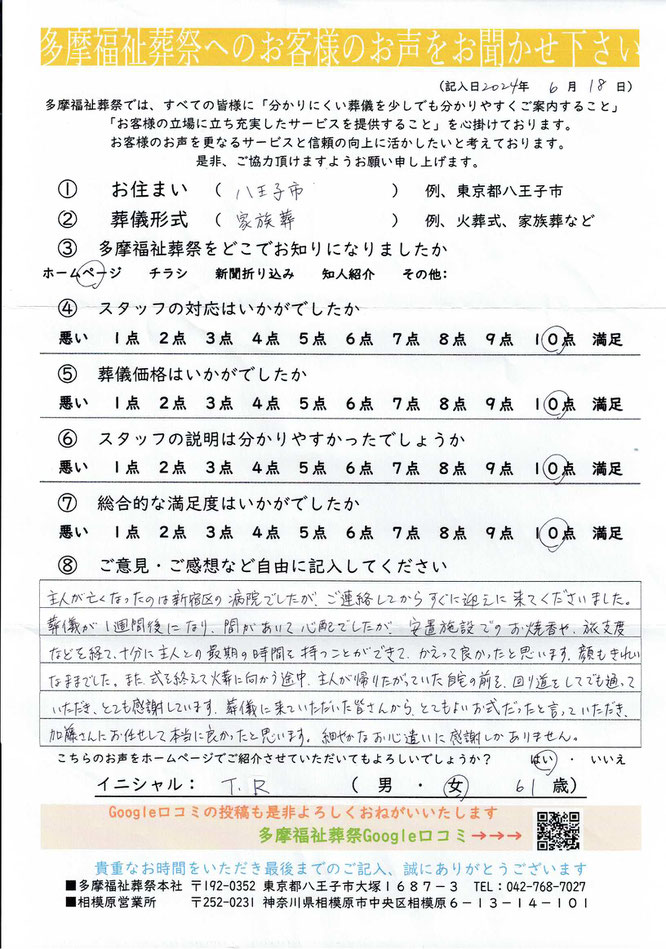 多摩福祉葬祭へのお客様のお声をお聞かせ下さい
（記入日2024年 6月 18日）
多摩福祉葬祭では、すべての皆様に「分かりにくい葬儀を少しでも分かりやすくご案内すること」
「お客様の立場に立ち充実したサービスを提供すること」を心掛けております。
お客様のお声を更なるサービスと信頼の向上に活かしたいと考えております。
是非、ご協力頂けますようお願い申し上げます。
① お住まい （ 八王子市 ） 例、東京都八王子市
② 葬儀形式 （ 家族葬 ） 例、火葬式、家族葬など
③ 多摩福祉葬祭をどこでお知りになりましたか
ホームページ チラシ 新聞折り込み 知人紹介 その他:
④ スタッフの対応はいかがでしたか
悪い 1点 2点 3点 4点 5点 6点 7点 8点 9点 10点 満足
⑤ 葬儀価格はいかがでしたか
悪い 1点 2点 3点 4点 5点 6点 7点 8点 9点 10点 満足
⑥ スタッフの説明は分かりやすかったでしょうか
悪い 1点 2点 3点 4点 5点 6点 7点 8点 9点 10点 満足
⑦ 総合的な満足度はいかがでしたか
悪い 1点 2点 3点 4点 5点 6点 7点 8点 9点 10点 満足
⑧ ご意見・ご感想など自由に記入してください
主人が亡くなったのは新宿区の病院でしたが、ご連絡してからすぐに迎えに来てくださいました。
葬儀が1週間後になり、間があいて心配でしたが、安置施設でのお焼香や、旅支度
などを経て、十分に主人との最期の時間を持つことができて、かえって良かったと思います。顔もきれい
なままでした。また、式を終えて火葬に向かう途中、主人が帰りたがっていた自宅の前を、回り道をしてでも通って
いただき、とても感謝しています。葬儀に来ていただいた皆さんから、とてもよいお式だったと言っていただき、
加藤さんにお任せして本当に良かったと思います。細やかなお心遣いに感謝しかありません。
こちらのお声をホームページでご紹介させていただいてもよろしいでしょうか？ はい ・ いいえ
イニシャル: T.R （ 男 ・ 女 61 歳）
Google口コミの投稿も是非よろしくおねがいいたします
多摩福祉葬祭Google口コミ→→→
貴重なお時間をいただき最後までのご記入、誠にありがとうございます
■多摩福祉葬祭本社 〒192-0352 東京都八王子市大塚１６８７－３ TEL：042-768-7027
■相模原営業所 〒252-0231 神奈川県相模原市中央区相模原６－１３－１４－１０１